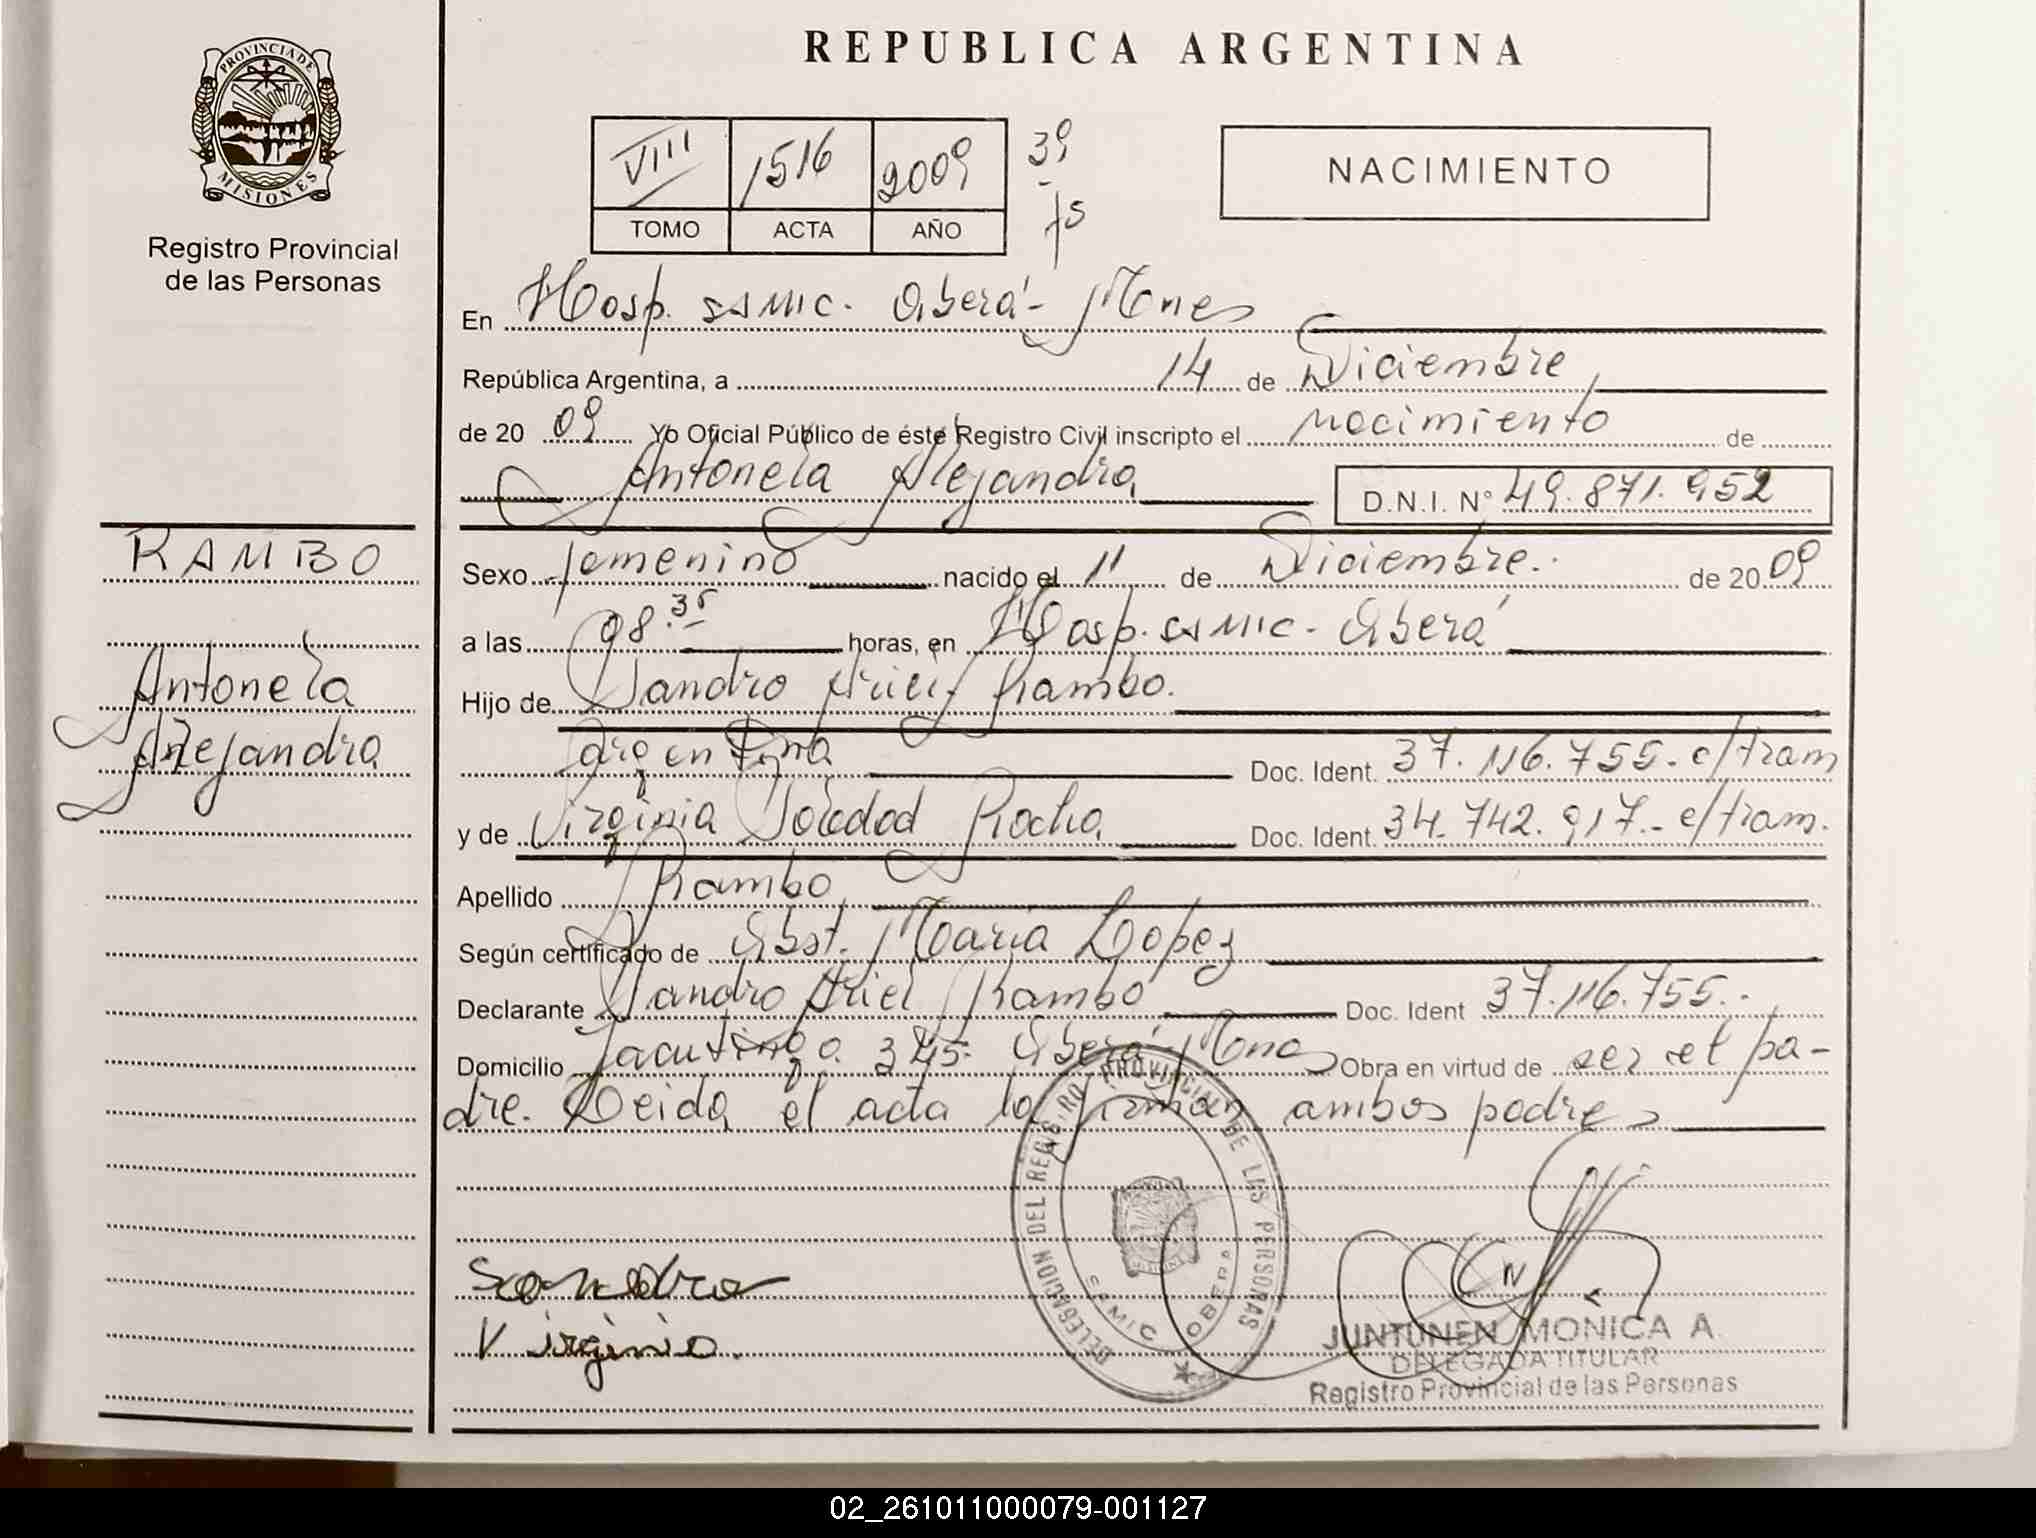 PROVINCIA DE
MISIONES
Registro Provincial
de las Personas
REPUBLICA ARGENTINA
VIII 1516 2009 39
TOMO ACTA AÑO
NACIMIENTO
En Hosp. SAMIC. Oberá - Mnes
República Argentina, a 14 de Diciembre
de 20 09 Yo Oficial Público de éste Registro Civil inscripto el nacimiento de
Antonela Alejandra D.N.I. N° 49.871.952
RAMBO
Antonela
Alejandra
Sexo femenino nacido el 11 de Diciembre de 20 09
a las 08.35 horas, en Hosp. SAMIC - Oberá
Hijo de Sandro Ariel Rambo.
Argentina Doc. Ident. 37.116.755 - e/tram
y de Virginia Soledad Rocha Doc. Ident. 34.742.917 - e/tram.
Apellido Rambo
Según certificado de Obst. Maria Lopez
Declarante Sandro Ariel Rambo Doc. Ident 37.116.755
Domicilio Jacutinga 345. Oberá - Mnes Obra en virtud de ser el pa-
dre. Leida el acta la firman ambos padres
DELEGACION DEL REGISTRO PROVINCIAL DE LAS PERSONAS
SAMIC OBERA
Sandro
Virginia.
JUNTUNEN MONICA A.
DELEGADA TITULAR
Registro Provincial de las Personas
02_261011000079-001127